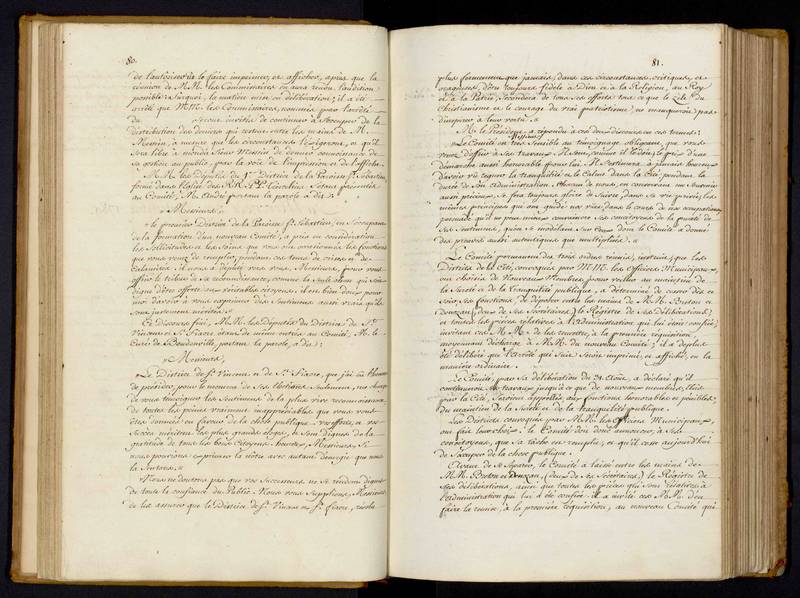 80.
de l'autoriser à le faire imprimer, et afficher, après que la
de MM. les Commissaires en aura rendu l'audition
possible; Surquoi, la matière mise en délibération; il a été
arrêté que MM. les Commissaires, nommés par l'arrêté
du Seront invités de continuer à s'occuper de la
Distribution des deniers qui restent entre les mains de M.
à mesure que les circonstances l'exigeront, et qu'il
Sera libre à mondit Sieur de donner connoissance de
sa gestion au public, par la voie de l'impression et de l'affiche.
MM. les Députés du 1er District de la Paroisse St. Sébastien
formé dans l'Eglise des présentés
au Comité, M. André portant la parole a dit:
"Messieurs,
"Le premier District de la Paroisse St. Sébastien, en s'occupant
de la formation d'un nouveau Comité, a pris en considération
les Sollicitudes et les Soins que vous ont occasionnés les fonctions
que vous venez de remplir, pendant ces tems de crises et de
Calamités: il nous a députés vers vous, Messieurs, pour vous
offrir le tribut de Sa reconnoissance, comme la Seule chose qui soit
digne d'être offerte aux véritables citoyens: il est bien doux pour
nous d'avoir à vous exprimer des Sentimens aussi vrais qu'ils
Sont justement mérités."
Ce Discours fini, MM. les Députés du District de St.
Vincent et St. Fiacre étant de même entrés au Comité, M. le
Curé de Boudonville, portant la parole, a dit:
"Messieurs,
"Le District de St. Vincent et de St. Fiacre, que j'ai eu l'honneur
de présider, pour le moment de Ses élections Seulement, me charge
de vous témoigner les Sentimens de la plus vive reconnoissance
de toutes les peines vraiment inappréciables que vous vous
êtes données en faveur de la chose publique. Vos efforts, et vos
Succès méritent les plus grands éloges, et Sont dignes de la
gratitude de tous les bons Citoyens. Heureux, Messieurs, Si
nous pouvions exprimer la nôtre avec autant d'énergie que nous
la Sentons."
Nous ne doutons pas que vos Successeurs ne Se rendent dignes
de toute la confiance du Public. Nous vous Supplions, Messieurs
de les assurer que le District de St. Vincent et St. Fiacre, résolu
81.
plus fermement que jamais, dans ces circonstances critiques, et
orageuses, d'être toujours fidèle à Dieu et à la Religion, au Roy
et à la Patrie, Secondera de tous ses efforts tout ce que le zèle du
Christianisme et le courage du vrai patriotisme, ne manqueront pas
d'inspirer à leur vertu."
M. le Président, a répondu à ces deux discours en ces termes:
"Le Comité est très Sensible au témoignage obligeant, que vous
venez d'offrir à Ses travaux. Il Sent, comme il le doit, le prix d'une
démarche aussi honorable pour lui. Il S'estimera à jamais heureux
d'avoir vû régner la tranquilité et le Calme dans la Cité, pendant la
durée de Son Administration. Chacun de nous, en conservera un Souvenir
aussi précieux. Il Sera toujours aise de Suivre, dans sa vie privée, les
mêmes principes qui ont guidé nos vies dans le cours de nos occupations
persuadé qu'il ne peut mieux convaincre Ses concitoyens de la pureté de
Ses Sentimens, qu'en se modelant Sur Ceux dont le Comité a donné
des preuves aussi autentiques que multipliées."
Le Comité permanent des trois ordres réunis, instruit que les
Districts de la Cité, convoqués par MM. les Officiers Municipaux,
ont choisi de Nouveaux Membres, pour veiller au maintien de
la Sureté et de la tranquilité publique, a déterminé de cesser dès ce
Soir, Ses fonctions, de déposer entre les mains de MM. Breton et
Denzan, (deux de ses Secrétaires), le Registre de Ses délibérations;
et toutes les pièces relatives à l'administration qui lui étoit confiée,
invitant ces MM. de les remettre, à la première réquisition,
moyennant décharge à MM. du nouveau Comité; il a de plus
été délibéré que l'arrêté qui Suit, Seroit imprimé et affiché, en la
manière ordinaire.
Le Comité, par Sa délibération du 29 Août, a déclaré qu'il
continueroit Ses travaux jusqu'à ce que de nouveaux membres, élus
par la Cité, Seroient appellés aux fonctions honorables et pénibles,
du maintien de la Sureté et de la tranquilité publique.
Les Districts convoqués par MM. les Officiers Municipaux,
ont fait leur choix; le Comité doit donc annoncer, à Ses
concitoyens, que Sa tâche est remplie, et qu'il cesse aujourd'hui
de S'occuper de la chose publique.
Avant de Se Séparer, le Comité a laissé entre les mains de
MM. Breton et Denzan, (deux de Ses Secrétaires) le Registre de
Ses délibérations, ainsi que toutes les pièces qui Sont relatives à
l'administration qui lui a été confiée: il a invité ces MM. d'en
faire la remise, à la première réquisition, au nouveau Comité qui